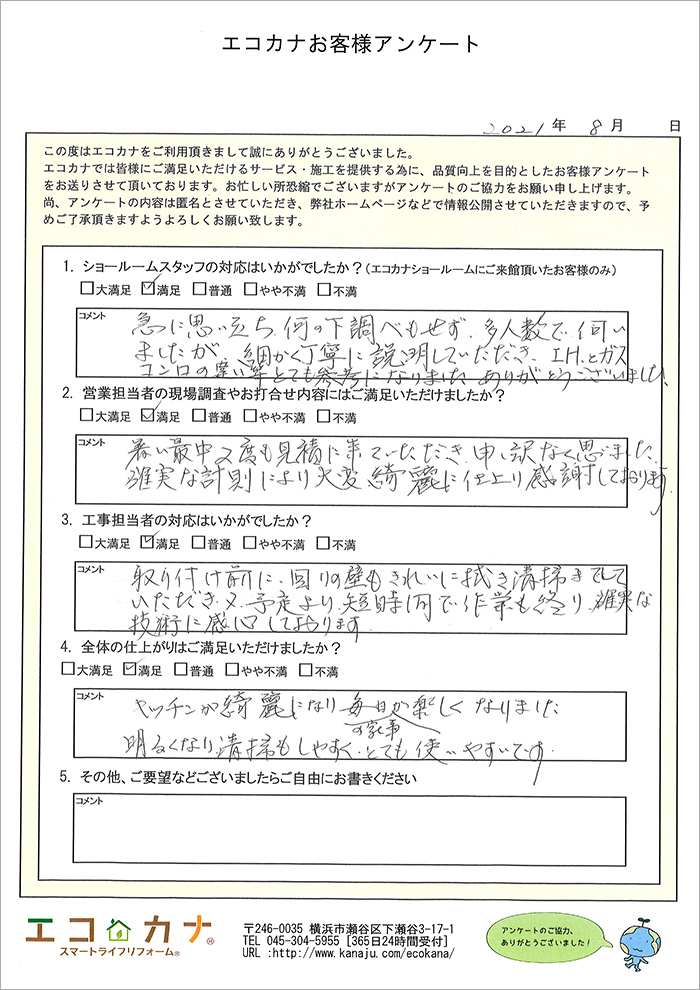 エコカナお客様アンケート
2021年 8月 日
この度はエコカナをご利用頂きまして誠にありがとうございました。
エコカナでは皆様にご満足いただけるサービス・施工を提供する為に、品質向上を目的としたお客様アンケート
をお送りさせて頂いております。お忙しい所恐縮でございますがアンケートのご協力をお願い申し上げます。
尚、アンケートの内容は匿名とさせていただき、弊社ホームページなどで情報公開させていただきますので、予
めご了承頂きますようよろしくお願い致します。
1. ショールームスタッフの対応はいかがでしたか？(エコカナショールームにご来館頂いたお客様のみ)
□大満足 ☑満足 □普通 □やや不満 □不満
コメント
急に思い立ち、何の下調べもせず、多人数で伺い
ましたが、細かく丁寧に説明していただき、I.H.とガス
コンロの違い等とても参考になりました ありがとうございました
2. 営業担当者の現場調査やお打合せ内容にはご満足いただけましたか？
□大満足 ☑満足 □普通 □やや不満 □不満
コメント
暑い最中2度も見積に来ていただき、申し訳なく思いました
確実な計測により大変綺麗に仕上り感謝しております
3. 工事担当者の対応はいかがでしたか？
□大満足 ☑満足 □普通 □やや不満 □不満
コメント
取り付け前に、回りの壁もきれいに拭き清掃までして
いただき、又、予定より短時間で作業も終り、確実な
技術に感心しております
4. 全体の仕上がりはご満足いただけましたか？
□大満足 ☑満足 □普通 □やや不満 □不満
コメント
キッチンが綺麗になり毎日の家事が楽しくなりました
明るくなり清掃もしやすく、とても使いやすいです
5. その他、ご要望などございましたらご自由にお書きください
コメント
エコカナ®
スマートライフリフォーム®
〒246-0035 横浜市瀬谷区下瀬谷3-17-1
TEL 045-304-5955 [365日24時間受付]
URL :http://www.kanaju.com/ecokana/
アンケートのご協力、
ありがとうございました！